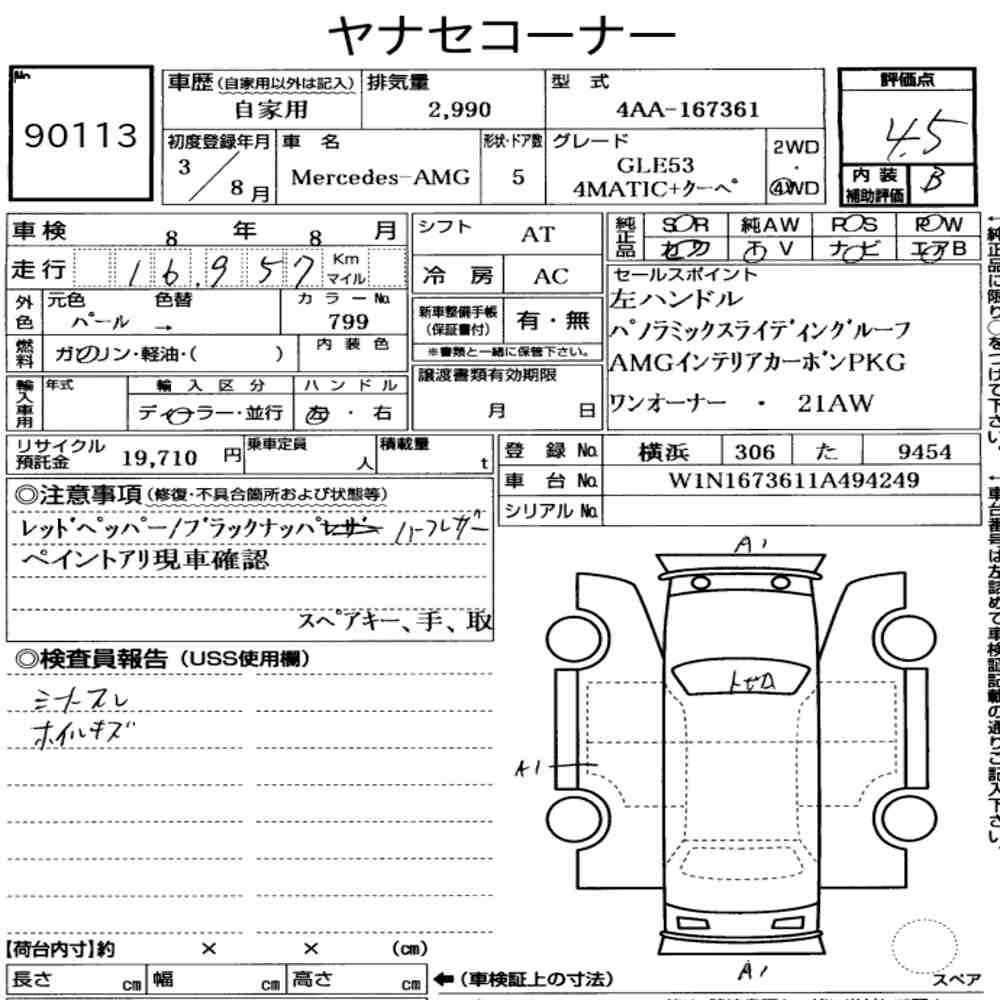 ヤナセコーナー
No.
90113
車歴(自家用以外は記入) 排気量 型式 評価点
自家用 2,990 4AA-167361 4.5
初度登録年月 車名 形状・ドア数 グレード 2WD
3/8月 Mercedes-AMG 5 GLE53 ・
4MATIC+クーペ 4WD
内装補助評価 B
車検 8 年 8 月 シフト AT
走行 16,957 Km マイル 冷房 AC
純正品 SOR 純AW POS POW
カワ TV ナビ エアB
外色 元色 色替 カラーNo.
パール → 799
新車整備手帳(保証書付) 有・無
※書類と一緒に保管下さい。
燃料 ガソリン・軽油・( ) 内装色
譲渡書類有効期限
月 日
セールスポイント
左ハンドル
パノラミックスライディングルーフ
AMGインテリアカーボンPKG
ワンオーナー ・ 21AW
輸入車用 年式 輸入区分 ハンドル
ディーラー・並行 左・右
リサイクル預託金 19,710 円 乗車定員 人 積載量 t
登録No. 横浜 306 た 9454
車台No. W1N1673611A494249
シリアルNo.
◎注意事項(修復・不具合箇所および状態等)
レッドペッパー/ブラックナッパレザー ハーフレザー
ペイントアリ現車確認
スペアキー、手、取
◎検査員報告(USS使用欄)
ミナースレ
ホイルキズ
A1
トビロ
A1
A1
スペア
【荷台内寸】約 × × (cm)
長さ cm 幅 cm 高さ cm ←(車検証上の寸法)
←純正品に限り○をつけて下さい。
←車台番号は左詰めで車検証記載の通りご記入下さい。